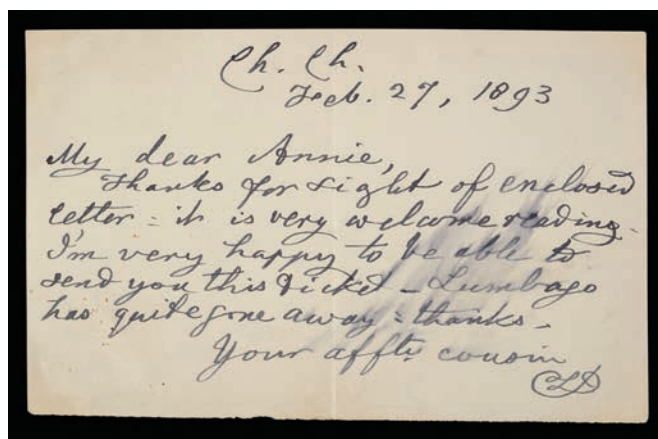 Ch. Ch.
Feb. 27, 1893
My dear Annie,
Thanks for sight of enclosed
letter: it is very welcome reading.
I'm very happy to be able to
send you this ticket – Lumbago
has quite gone away: thanks –
Your affte cousin
CLD